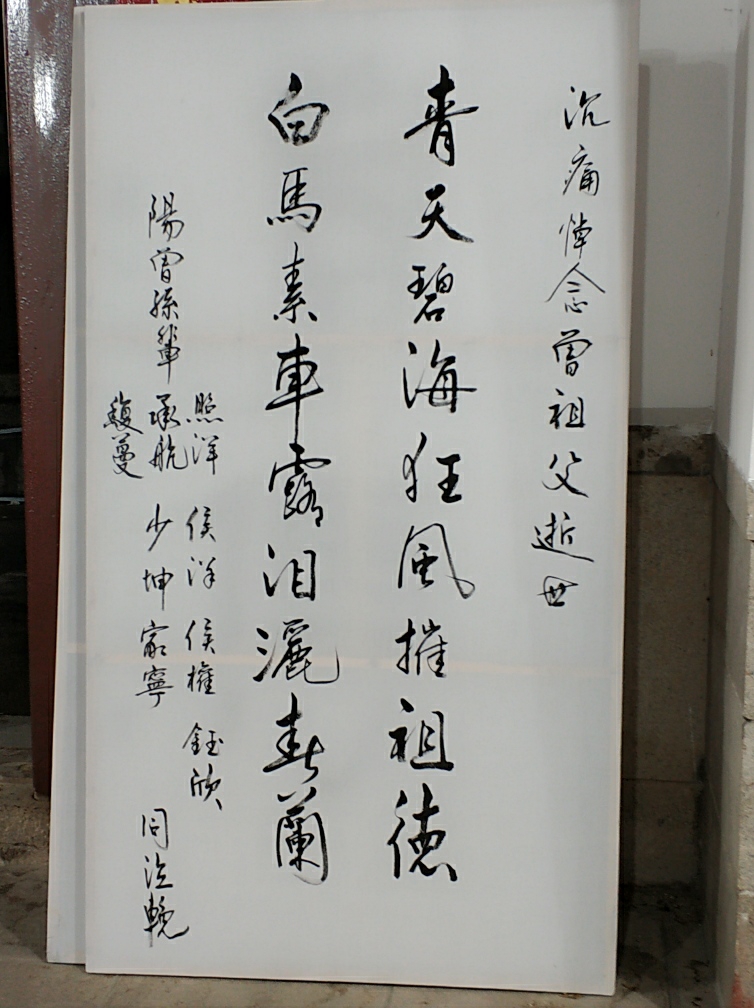 沉痛悼念曾祖父逝世
青天碧海狂風摧祖德
白馬素車露泪灑春蘭
陽曾孫輩
照洋 侯洋 侯權 鈺欣
承航 少坤 家寧
馥蔓
同泣輓